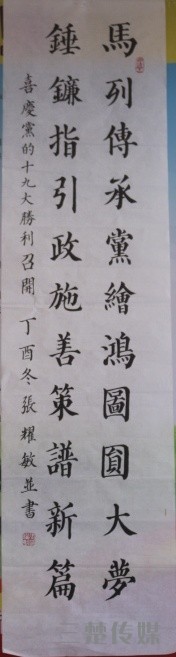 馬列傳承黨繪鴻圖圓大夢
錘鐮指引政施善策譜新篇
喜慶黨的十九大勝利召開 丁酉冬張耀敏並書
三楚传媒